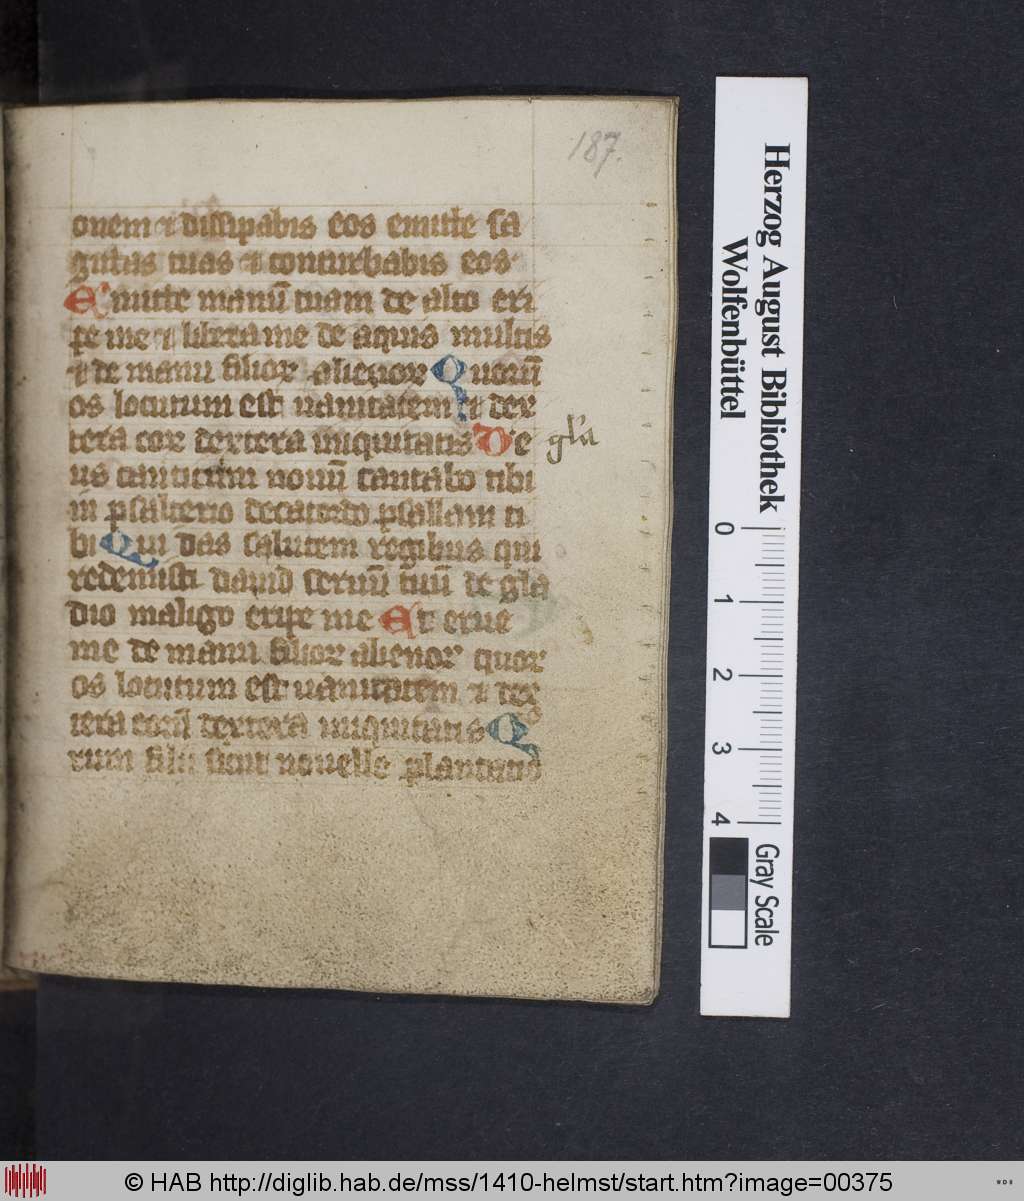 187.
onem ⁊ dissipabis eos emitte sa
gittas tuas ⁊ conturbabis eos
Emitte manū tuam de alto eri
pe me ⁊ libera me de aquis multis
⁊ de manu filioꝝ alienoꝝ Quorū
os locutum est uanitatem ⁊ dex
tera eoꝝ dextera iniquitatis De
gla
us canticum nouū cantabo tibi
in psalterio decacordo psallam ti
bi Qui das salutem regibus qui
redemisti dauid seruū tuū de gla
dio maligo eripe me Et erue
me de manu filioꝝ alienoꝝ quoꝝ
os locutum est uanitatem ⁊ dex
tera eoꝝ dextera iniquitatis Q
rum filii sicut nouelle plantatio
Herzog August Bibliothek
Wolfenbüttel
0 1 2 3 4
Gray Scale
© HAB http://diglib.hab.de/mss/1410-helmst/start.htm?image=00375